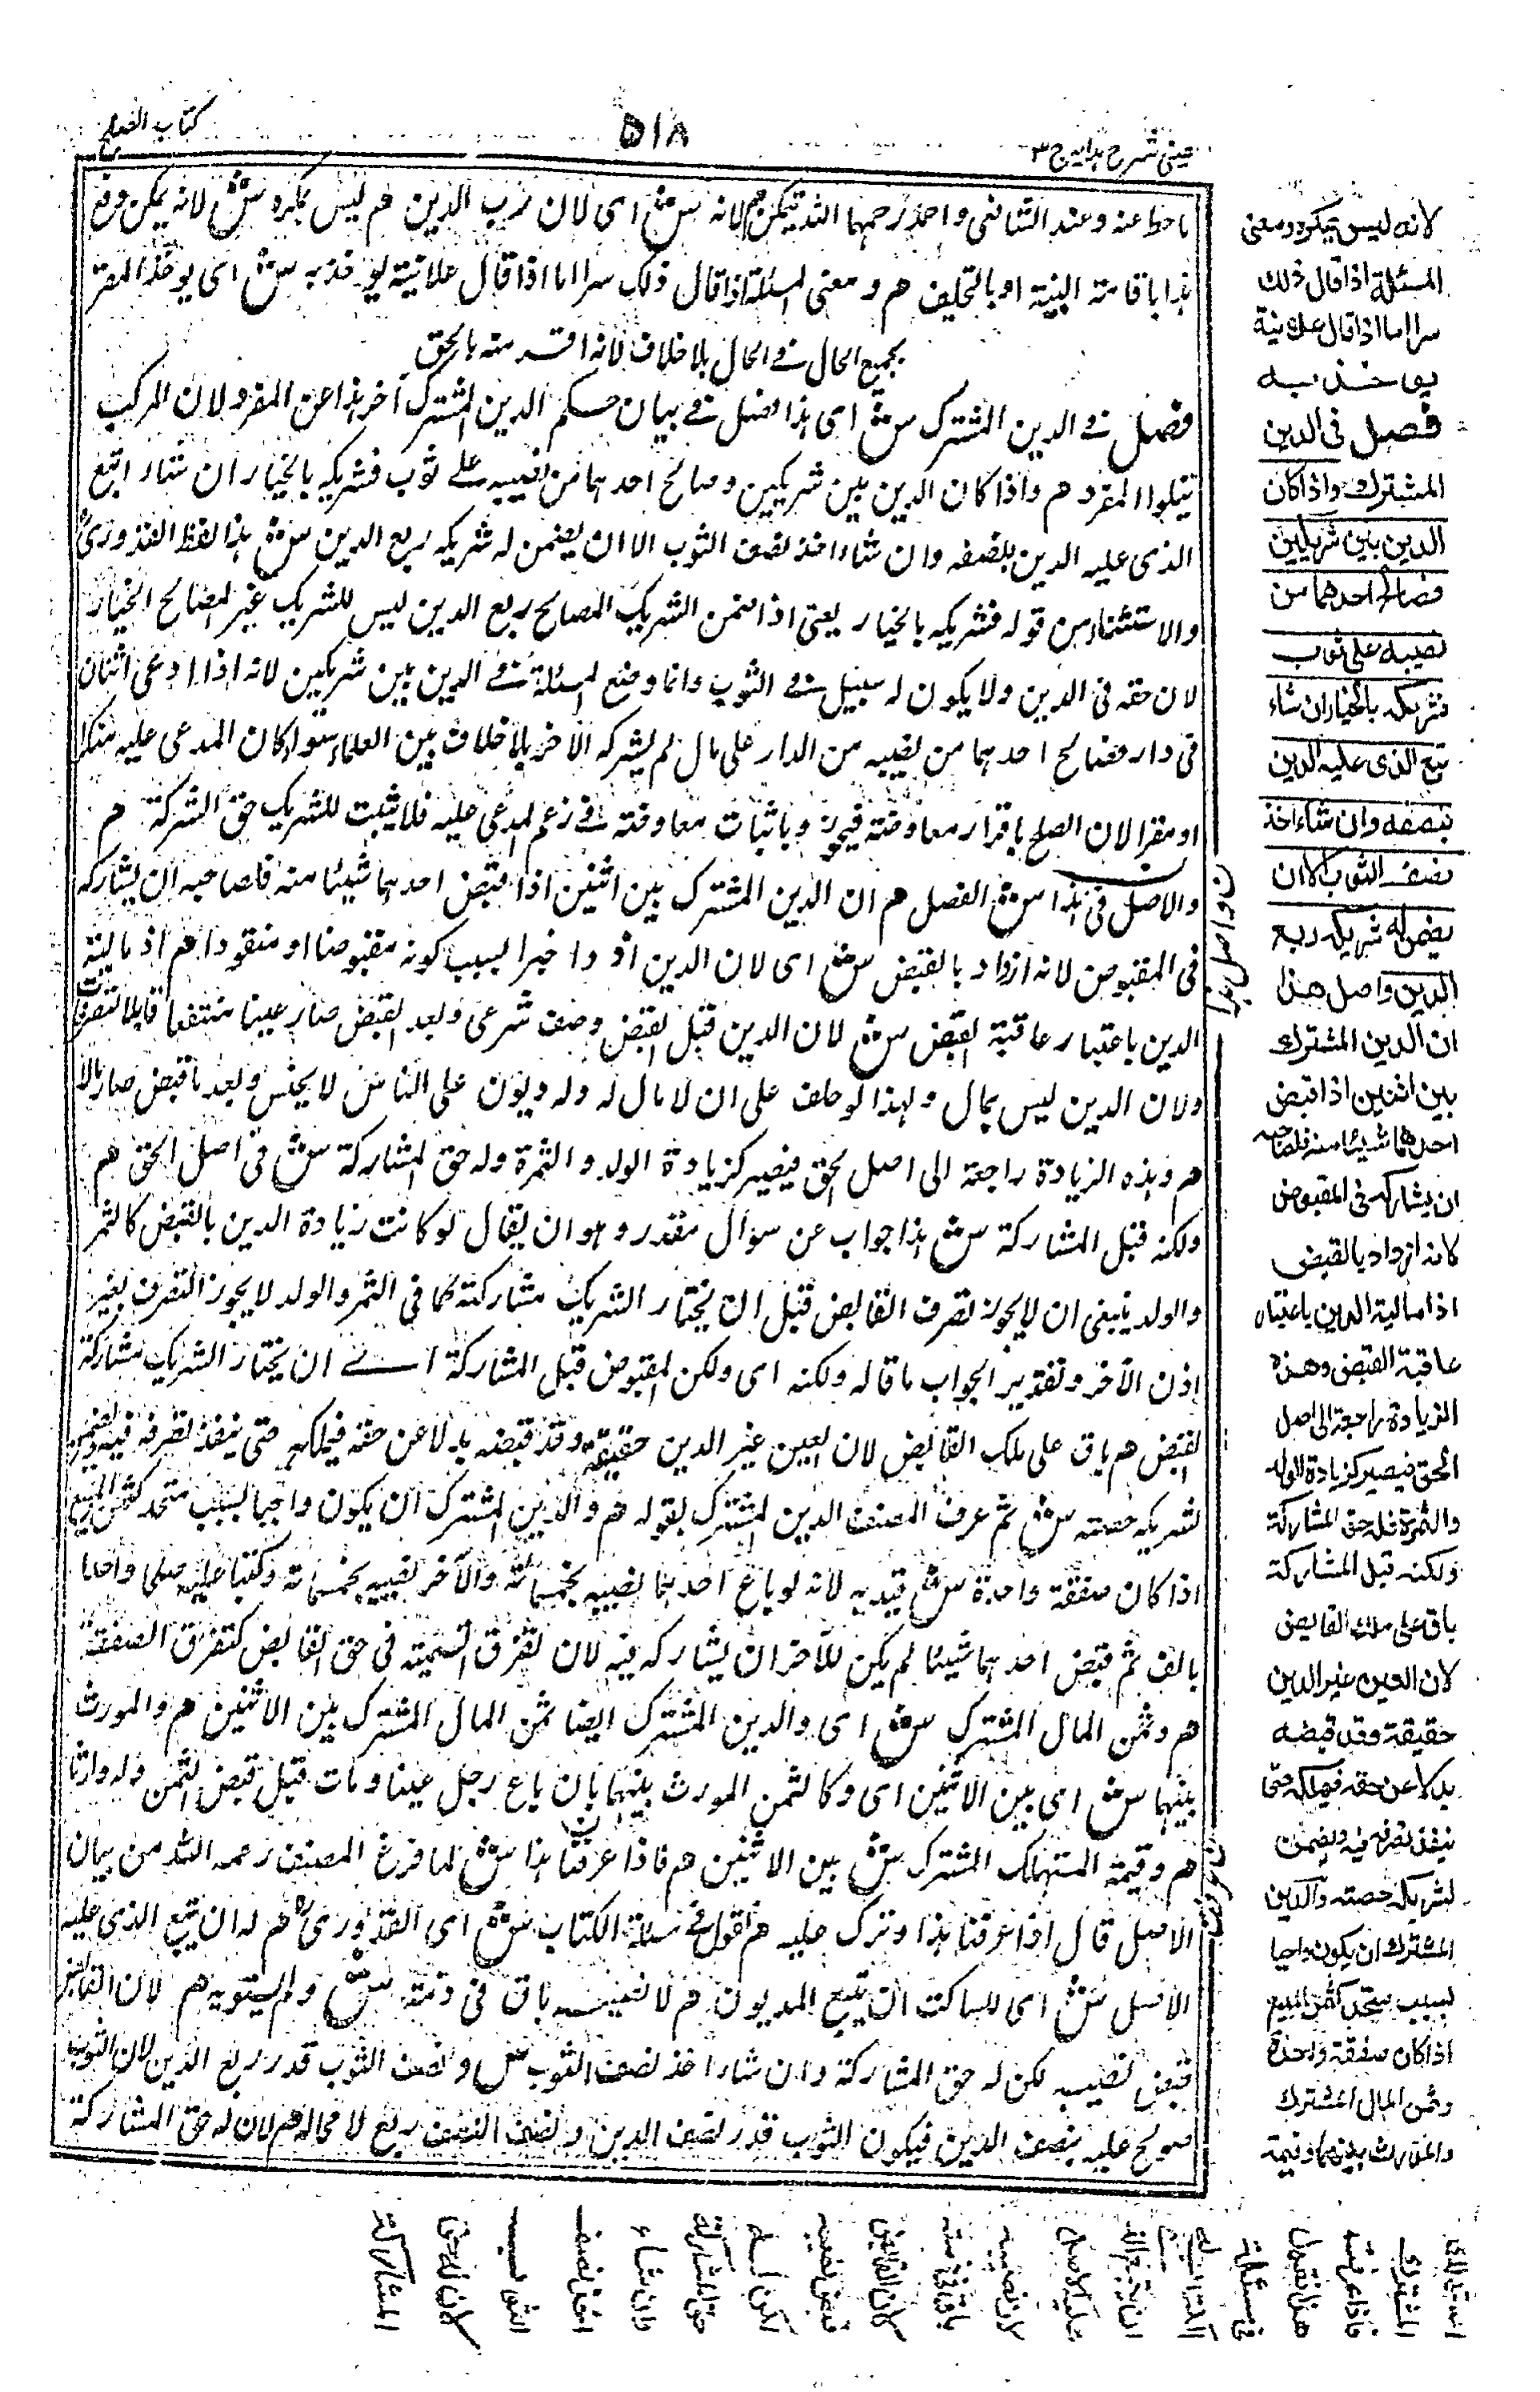 عینی شرح ہدایہ ج ۳
۵۱۸
کتاب الصلح
ما حط عنه وعند الشافعی واحمد رحمهما الله تیمکن م لانه ش ای لان رب الدین هم لیس بمکره ش لانه یمکن دفع
هذا باقامة البینة او بالتحلیف هم ومعنی المسئلة اذا قال ذلک سرا اما اذا قال علانیة یوخذ به ش ای یوخذ المقر
بجمیع الحال فی الحال بلا خلاف لانه اقرار منه بالحق
فصل فی الدین المشترک ش ای هذا فصل فی بیان حکم الدین المشترک آخر هذا عن المفرد لان المرکب
یتلو المفرد هم واذا کان الدین بین شریکین وصالح احدهما من نصیبه علی ثوب فشریکه بالخیار ان شاء اتبع
الذی علیه الدین بنصفه وان شاء اخذ نصف الثوب الا ان یضمن له شریکه ربع الدین ش هذا لفظ القدوری
والاستثناء من قوله فشریکه بالخیار یعنی اذا ضمن الشریک المصالح ربع الدین لیس للشریک غیر المصالح الخیار
لان حقه فی الدین ولا یکون له سبیل فی الثوب وانما وضع المسئلة فی الدین بین شریکین لانه اذا ادعی اثنان
فی دار فصالح احدهما من نصیبه من الدار علی مال لم یشرکه الآخر بلا خلاف بین العلماء سواء کان المدعی علیه منکرا
او مقرا لان الصلح باقرار معاوضة فیجوز وباثبات معاوضة فی زعم المدعی علیه فلا یثبت للشریک حق الشرکة هم
والاصل فی هذا ش الفصل هم ان الدین المشترک بین اثنین اذا قبض احدهما شیئا منه فلصاحبه ان یشارکه
فی المقبوض لانه ازداد بالقبض ش ای لان الدین ازداد خیرا بسبب کونه مقبوضا او منقودا هم اذ مالیة
الدین باعتبار عاقبة القبض ش لان الدین قبل القبض وصف شرعی وبعد القبض صار عینا منتفعا قابلا للتصرفات
ولان الدین لیس بمال ولهذا لو حلف علی ان لا مال له وله دیون علی الناس لا یحنث وبعد ما قبض صار مالا
هم وهذه الزیادة راجعة الی اصل الحق فیصیر کزیادة الولد والثمرة وله حق المشارکة ش فی اصل الحق هم
ولکنه قبل المشارکة ش هذا جواب عن سوال مقدر وهو ان یقال لو کانت زیادة الدین بالقبض کالثمر
والولد ینبغی ان لا یجوز تصرف القابض قبل ان یختار الشریک مشارکته کما فی الثمر والولد لا یجوز التصرف بغیر
اذن الآخر وتقدیر الجواب ما قاله ولکنه ای ولکن المقبوض قبل المشارکة ای ان یختار الشریک مشارکة
القبض هم باق علی ملک القابض لان العین غیر الدین حقیقة وقد قبضه بدلا عن حقه فیملکه حتی ینفذ تصرفه فیه ویضمن
لشریکه حصته ش ثم عرف المصنف الدین المشترک بقوله هم والدین المشترک ان یکون واجبا بسبب متحد کثمن المبیع
اذا کان صفقة واحدة ش قید به لانه لو باع احدهما نصیبه بخمسمائة والآخر نصیبه بخمسمائة وکتبا علیه صکا واحدا
بالف ثم قبض احدهما شیئا لم یکن للآخر ان یشارکه فیه لان تفرق التسمیة فی حق القابض کتفرق الصفقة
هم وثمن المال المشترک ش ای والدین المشترک ایضا ثمن المال المشترک بین الاثنین هم والمورث
بینهما ش ای بین الاثنین ای وکالثمن المورث بینهما بان باع رجل عینا ومات قبل قبض الثمن وله وارثان
هم وقیمة المستهلک المشترک ش بین الاثنین هم فاذا عرفنا هذا ش لما فرغ المصنف رحمه الله من بیان
الاصل قال اذا عرفنا هذا وترک علیه هم نقول فی مسئلة الکتاب ش ای القدوری هم له ان یتبع الذی علیه
الاصل ش ای للساکت ان یتبع المدیون هم لان نصیبه باق فی ذمته ش ولم یستوفه هم لان القابض
قبض نصیبه لکن له حق المشارکة وان شاء اخذ نصف الثوب ش ونصف الثوب قدر ربع الدین لان الثوب
صولح علیه بنصف الدین فیکون الثوب قدر نصف الدین ونصف النصف ربع لا محاله هم لان له حق المشارکة
لانه لیس بمکره ومعنی
المسئلة اذا قال ذلک
سرا اما اذا قال علانیة
یوخذ به
فصل فی الدین
المشترک واذا کان
الدین بین شریکین
فصالح احدهما من
نصیبه علی ثوب
فشریکه بالخیار ان شاء
تبع الذی علیه الدین
بنصفه وان شاء اخذ
نصف الثوب الا ان
یضمن له شریکه ربع
الدین واصل هذا
ان الدین المشترک
بین اثنین اذا قبض
احدهما شیئا منه فلصاحبه
ان یشارکه فی المقبوض
لانه ازداد بالقبض
اذ مالیة الدین باعتبار
عاقبة القبض وهذه
الزیادة راجعة الی اصل
الحق فیصیر کزیادة الولد
والثمرة فله حق المشارکة
ولکنه قبل المشارکة
باق علی ملک القابض
لان العین غیر الدین
حقیقة وقد قبضه
بدلا عن حقه فیملکه حتی
ینفذ تصرفه فیه ویضمن
لشریکه حصته والدین
المشترک ان یکون واجبا
بسبب متحد کثمن المبیع
اذا کان صفقة واحدة
وثمن المال المشترک
والمورث بینهما وقیمة
المستهلک
المشترک
فاذا عرفت
هذا نقول
فی مسئلة
الکتاب له
ان یتبع الذی
علیه الاصل
لان نصیبه
باق فی ذمته
لان القابض
قبض نصیبه
لکن له
حق المشارکة
وان شاء
اخذ نصف
الثوب
لان له حق
المشارکة